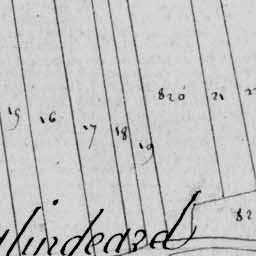 15 16 17 18 19 820 21
82
lindeard